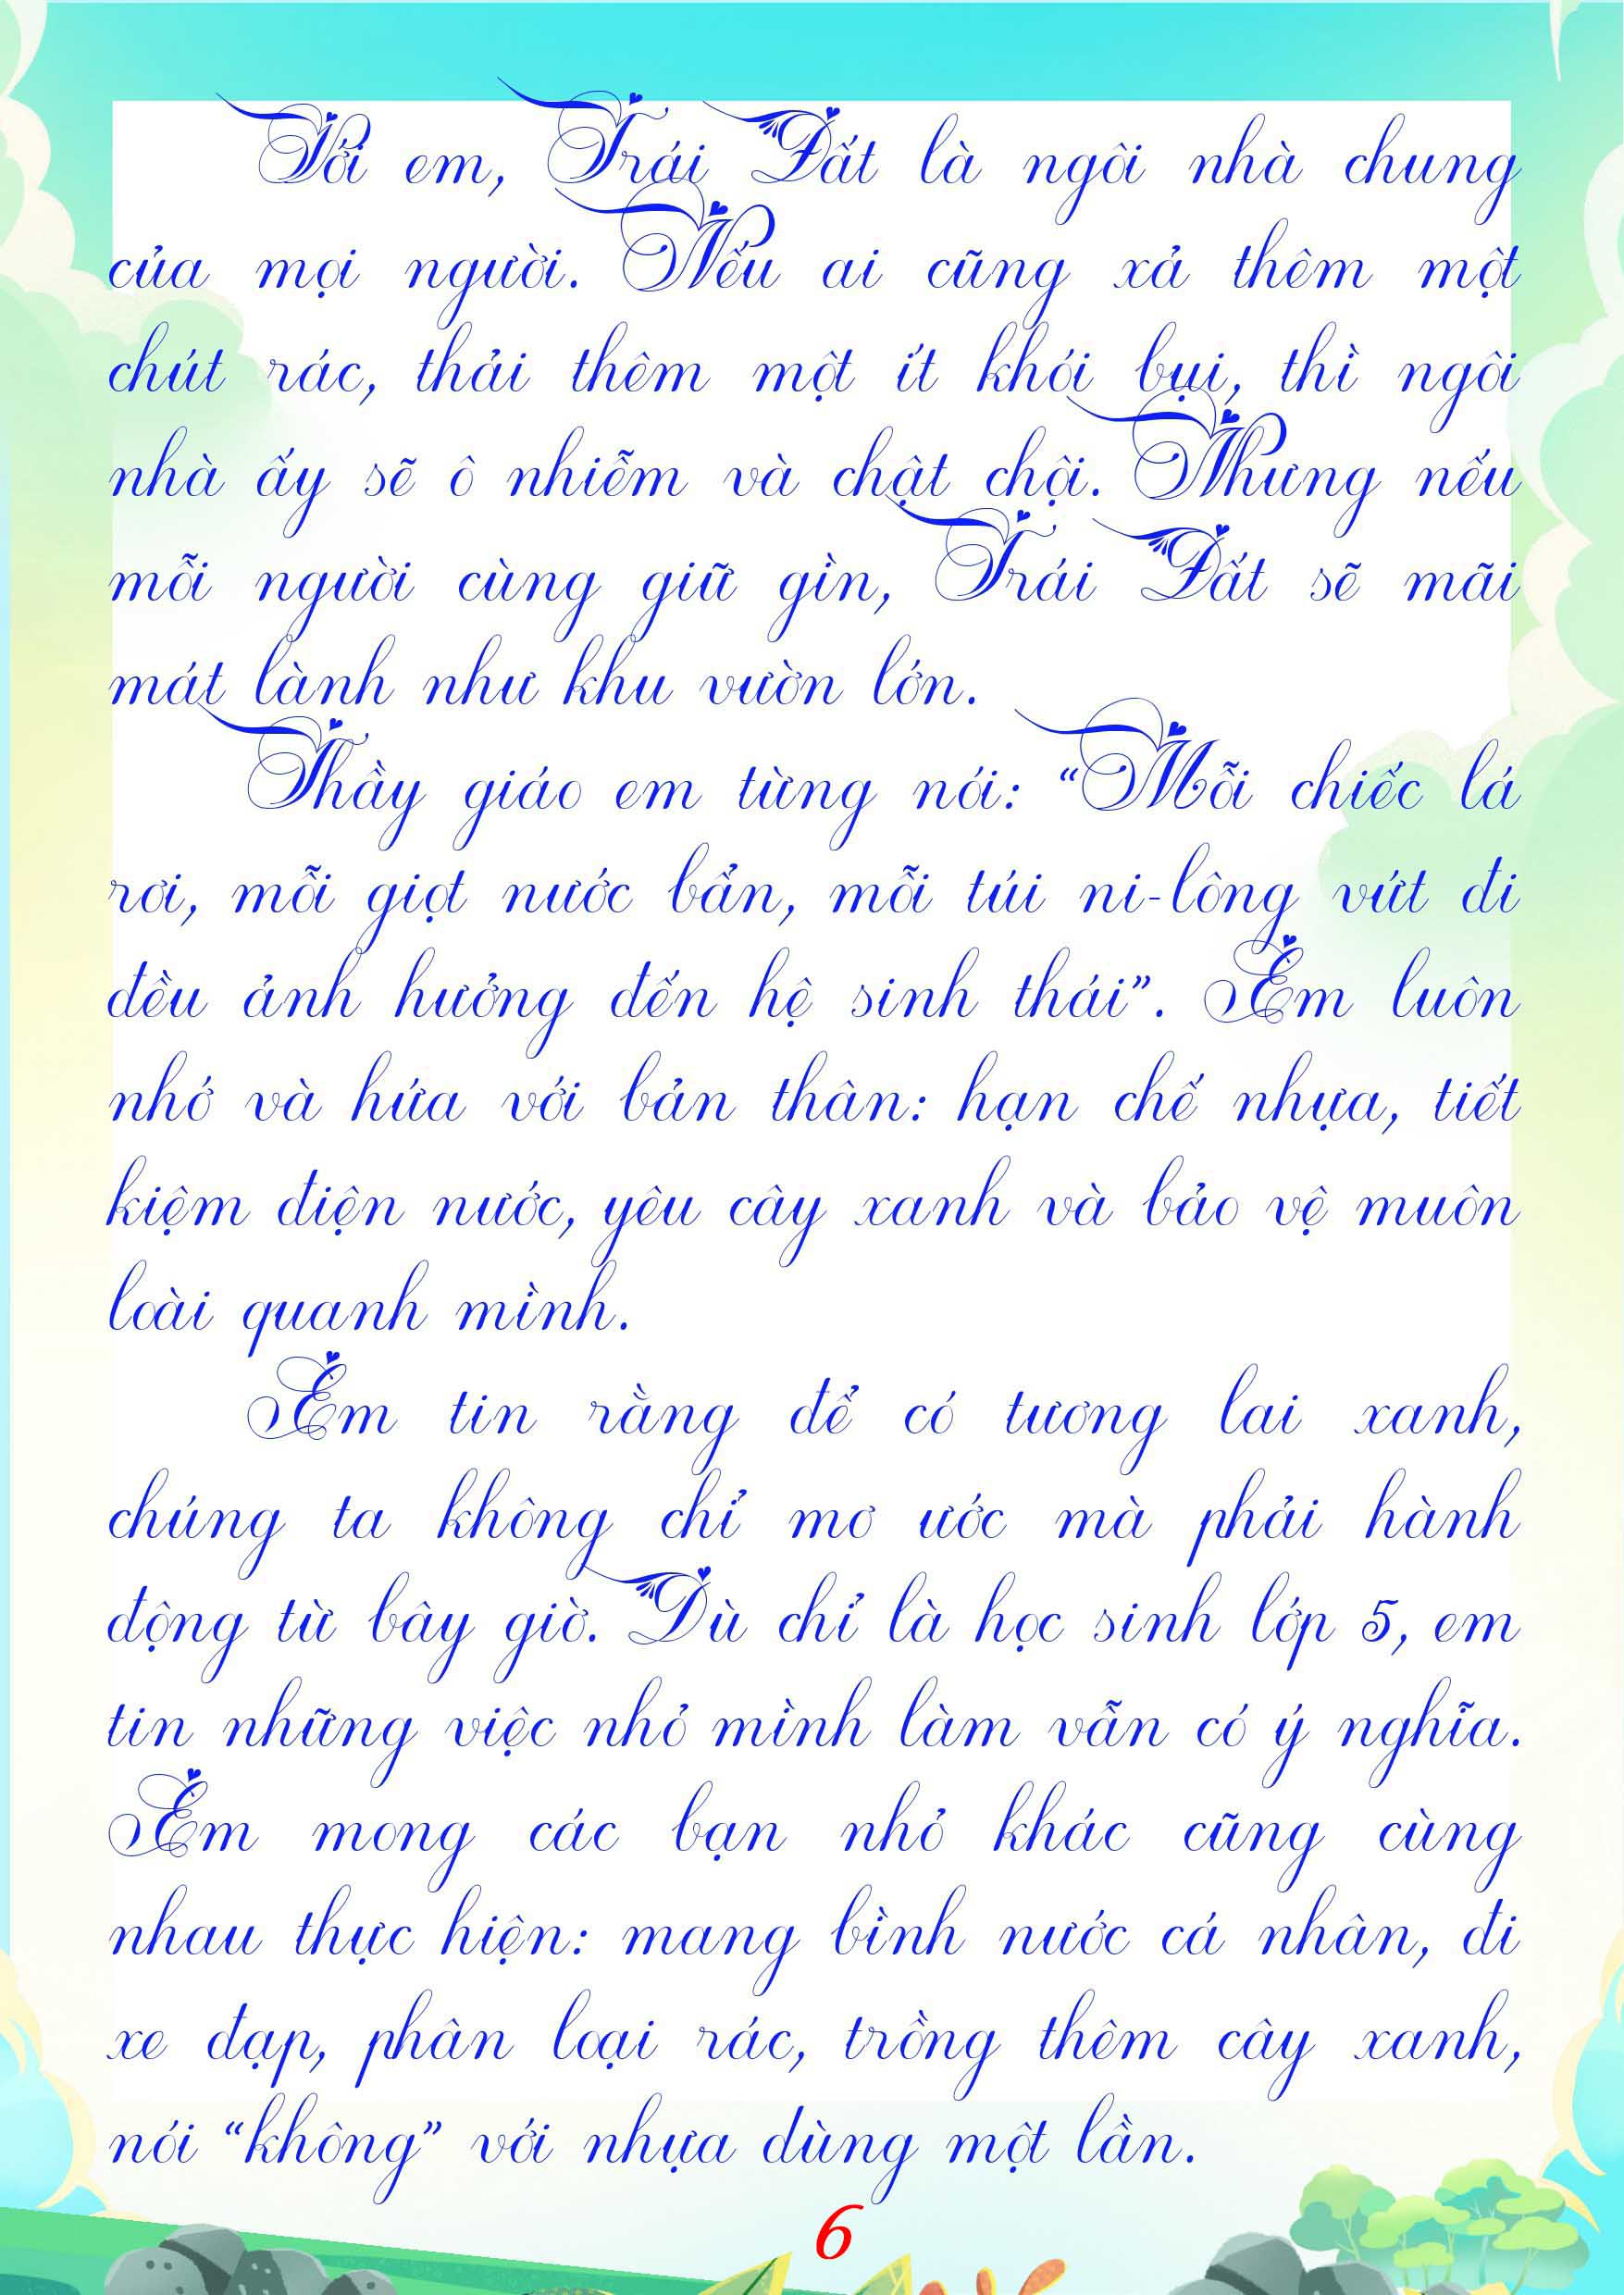 Với em, Trái Đất là ngôi nhà chung
của mọi người. Nếu ai cũng xả thêm một
chút rác, thải thêm một ít khói bụi, thì ngôi
nhà ấy sẽ ô nhiễm và chật chội. Nhưng nếu
mỗi người cùng giữ gìn, Trái Đất sẽ mãi
mát lành như khu vườn lớn.
Thầy giáo em từng nói: “Mỗi chiếc lá
rơi, mỗi giọt nước bẩn, mỗi túi ni-lông vứt đi
đều ảnh hưởng đến hệ sinh thái”. Em luôn
nhớ và hứa với bản thân: hạn chế nhựa, tiết
kiệm điện nước, yêu cây xanh và bảo vệ muôn
loài quanh mình.
Em tin rằng để có tương lai xanh,
chúng ta không chỉ mơ ước mà phải hành
động từ bây giờ. Dù chỉ là học sinh lớp 5, em
tin những việc nhỏ mình làm vẫn có ý nghĩa.
Em mong các bạn nhỏ khác cũng cùng
nhau thực hiện: mang bình nước cá nhân, đi
xe đạp, phân loại rác, trồng thêm cây xanh,
nói “không” với nhựa dùng một lần.
6